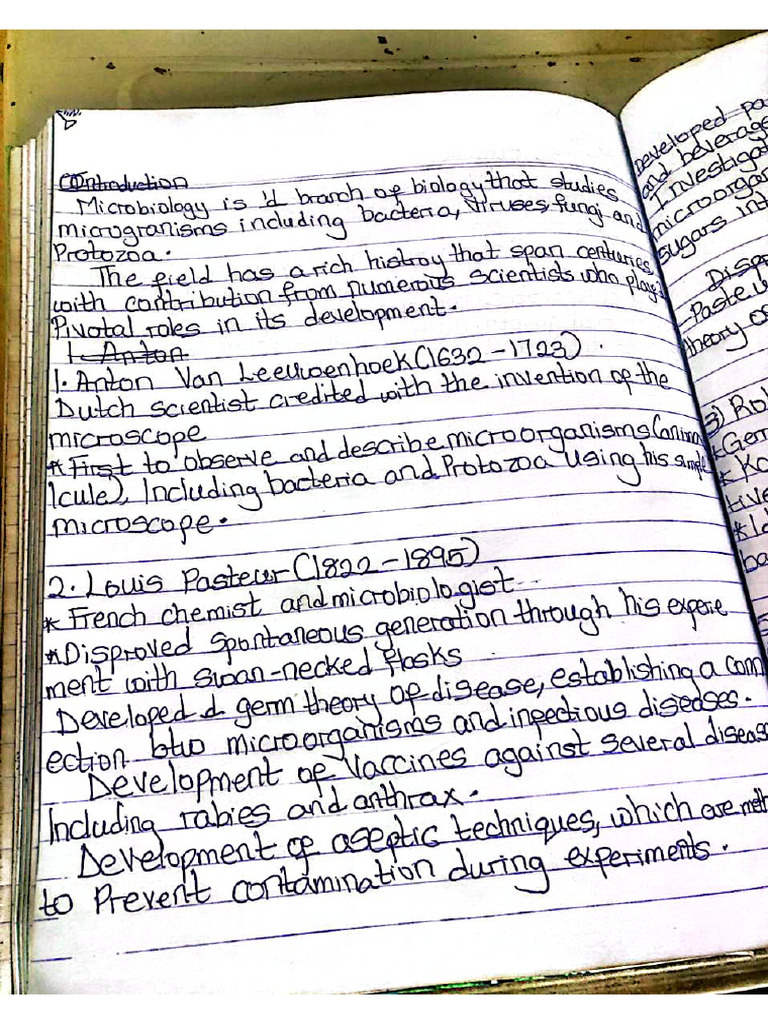 Introduction
Microbiology is 'd branch of biology that studies
microgranisms including bacteria, Viruses, fungi and
Protozoa.
The field has a rich histroy that span centuries,
with contribution from numerous scientists who play
Pivotal roles in its development.
1. Anton
1. Anton Van Leeuwenhoek (1632-1723).
Dutch scientist credited with the invention of the
microscope
* First to observe and describe microorganisms (anima
lcule). Including bacteria and Protozoa using his simple
microscope.
2. Louis Pasteur (1822-1895)
* French chemist and microbiologist
* Disproved Spontaneous generation through his experie
ment with swan-necked flasks
Developed d germ theory of disease, establishing a conn
ection btw microorganisms and infectious diseases.
Development of Vaccines against several diseas
Including rabies and anthrax.
Development of aseptic techniques, which are meth
to Prevent contamination during experiments.
Developed pa
and beverage
Investigat
microorgan
sugars int
Disp
Pasteu
theory of
3) Ro
* Germ
* Ko
tive
* Id
ba